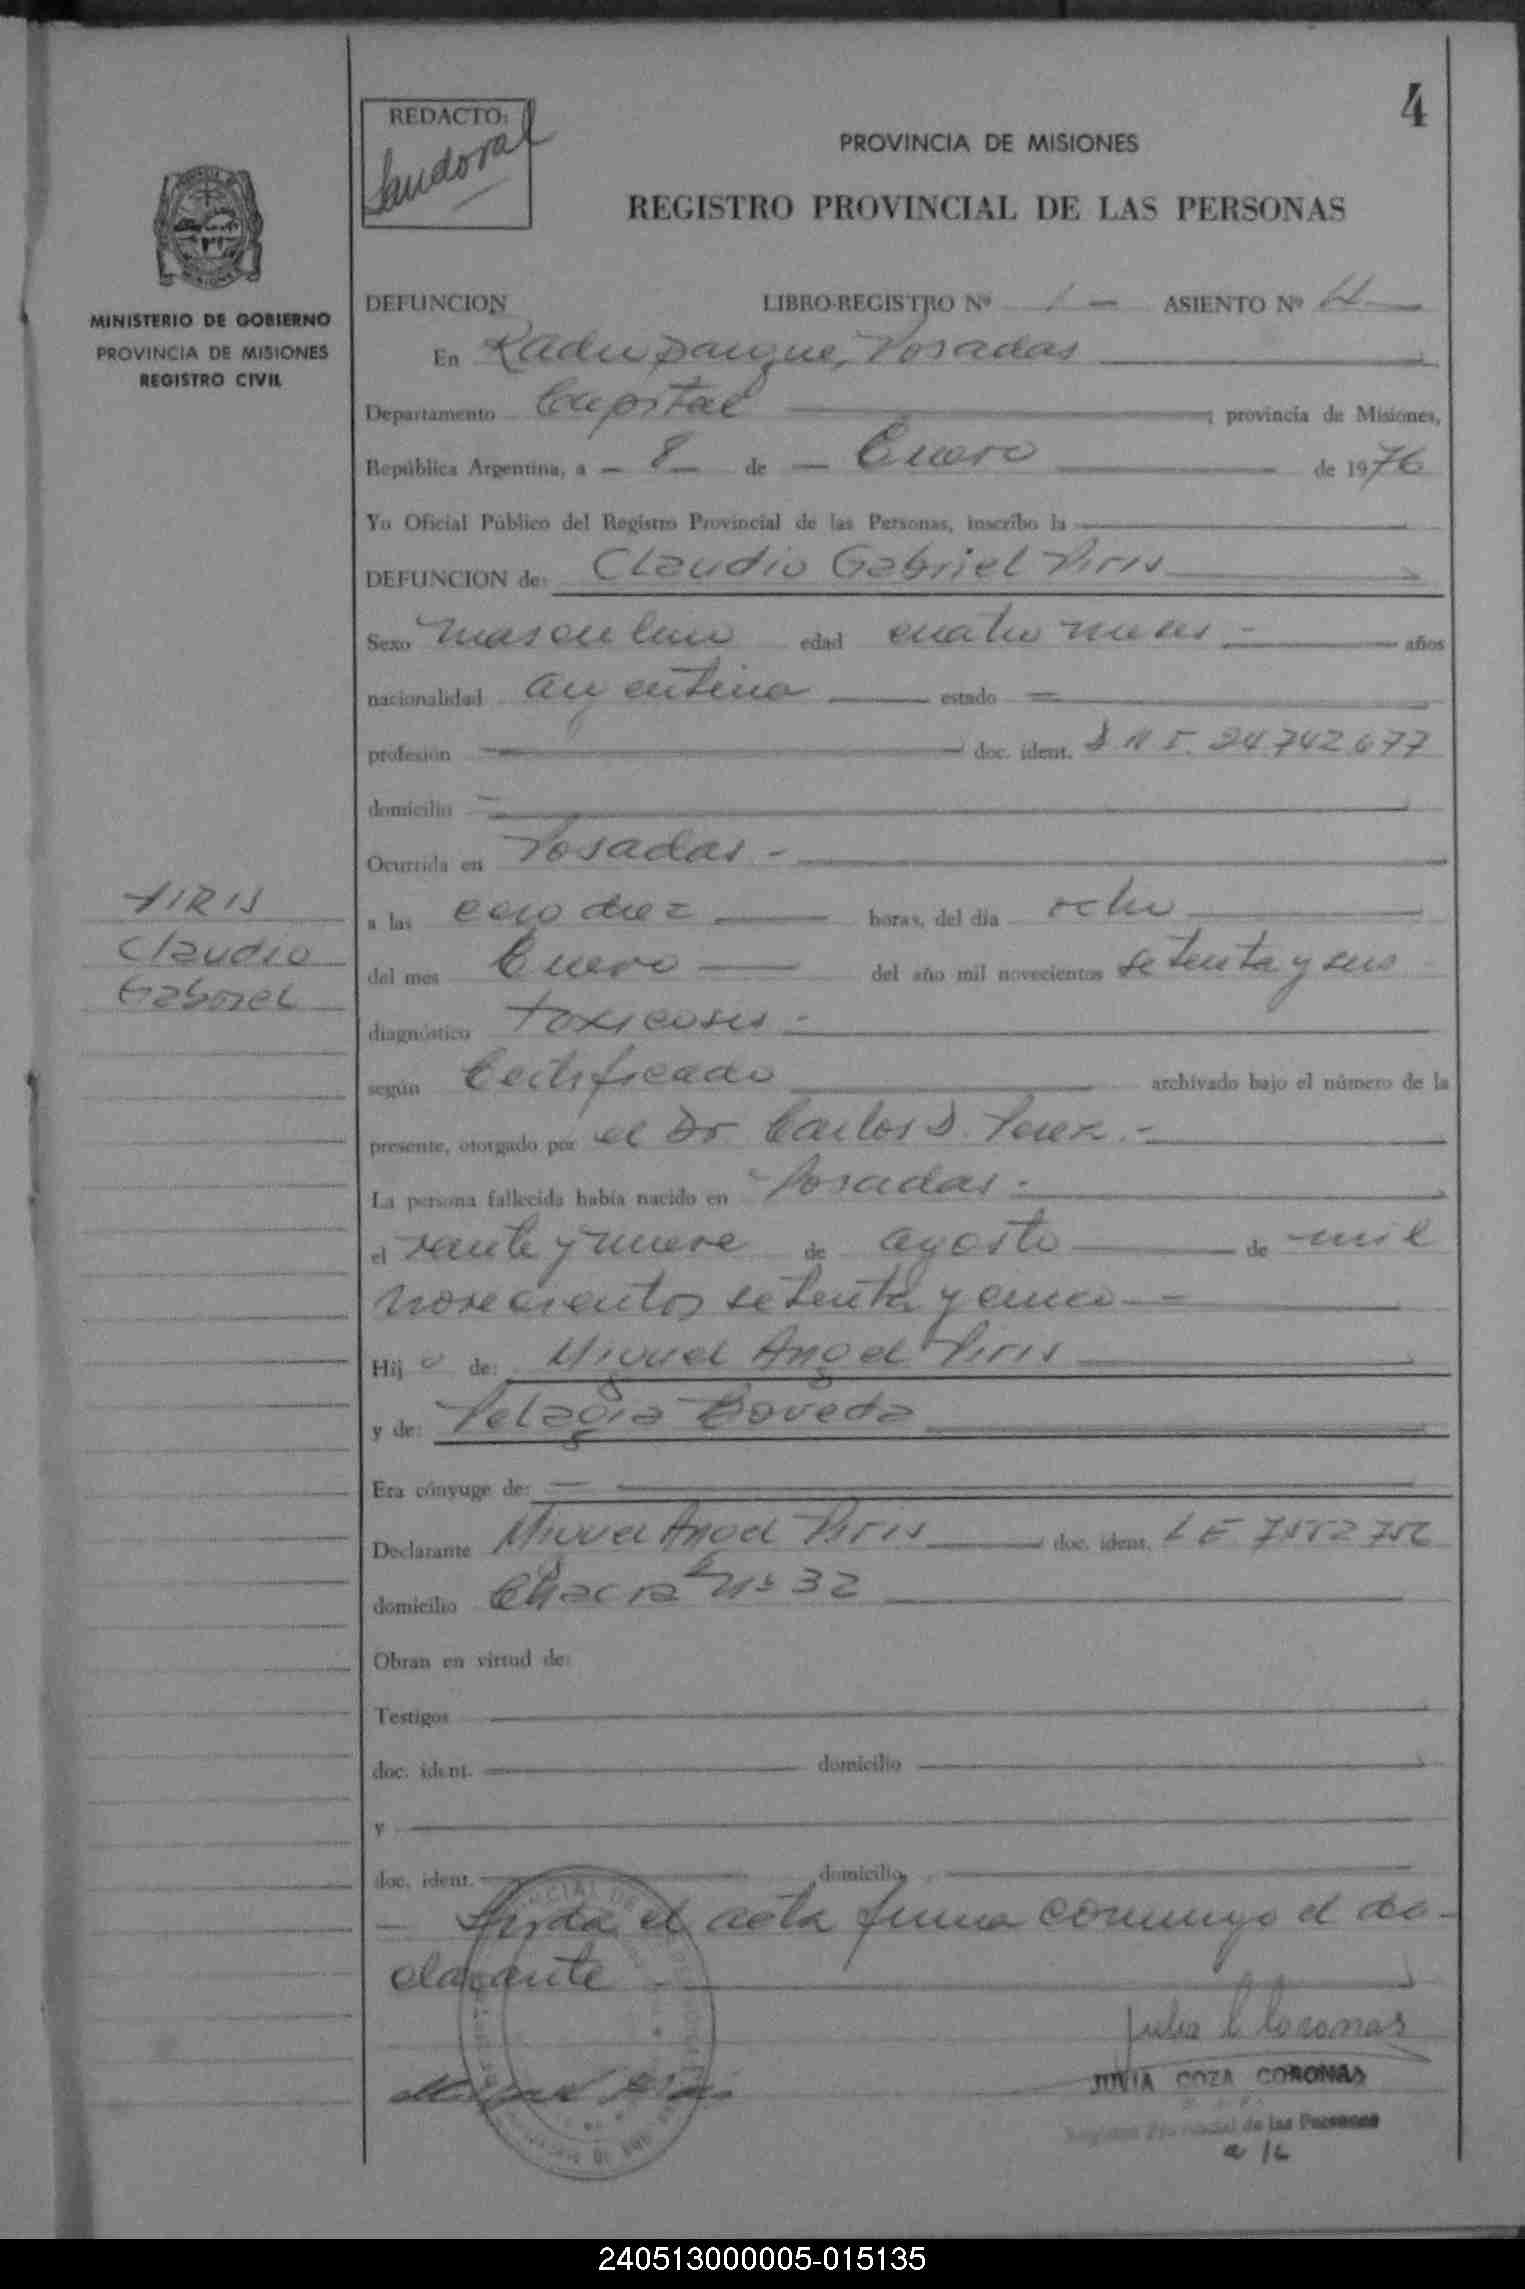 4
REDACTO:
Sandoval
PROVINCIA DE MISIONES
REGISTRO PROVINCIAL DE LAS PERSONAS
MINISTERIO DE GOBIERNO
PROVINCIA DE MISIONES
REGISTRO CIVIL
DEFUNCION LIBRO-REGISTRO Nº 1 - ASIENTO Nº 4
En Posadas
Departamento Capital ; provincia de Misiones,
República Argentina, a - 8 - de - Enero de 1976
Yo Oficial Público del Registro Provincial de las Personas, inscribo la
DEFUNCION de: Claudio Gabriel Piris
Sexo masculino edad cuatro meses - años
nacionalidad argentina estado -
profesión doc. ident. D N I. 24.742.677
domicilio -
Ocurrida en Posadas -
PIRIS
Claudio
Gabriel
a las cero diez horas, del día ocho
del mes Enero del año mil novecientos setenta y seis
diagnóstico toxicosis -
según Certificado archivado bajo el número de la
presente, otorgado por el Dr. Carlos D. Perez. -
La persona fallecida había nacido en Posadas -
el veinte y nueve de agosto de mil
novecientos setenta y cinco -
Hij o de: Miguel Angel Piris
y de: Pelagia Boveda
Era cónyuge de: -
Declarante Miguel Angel Piris doc. ident. L E 7552756
domicilio Chacra Nº 32
Obran en virtud de:
Testigos
doc. ident. domicilio
y
doc. ident. domicilio
- Leyda el acta firma conmigo el de-
clarante
Julia C Coronas
Miguel Piris
JULIA COZA CORONAS
Registro Provincial de las Personas
a/c
240513000005-015135